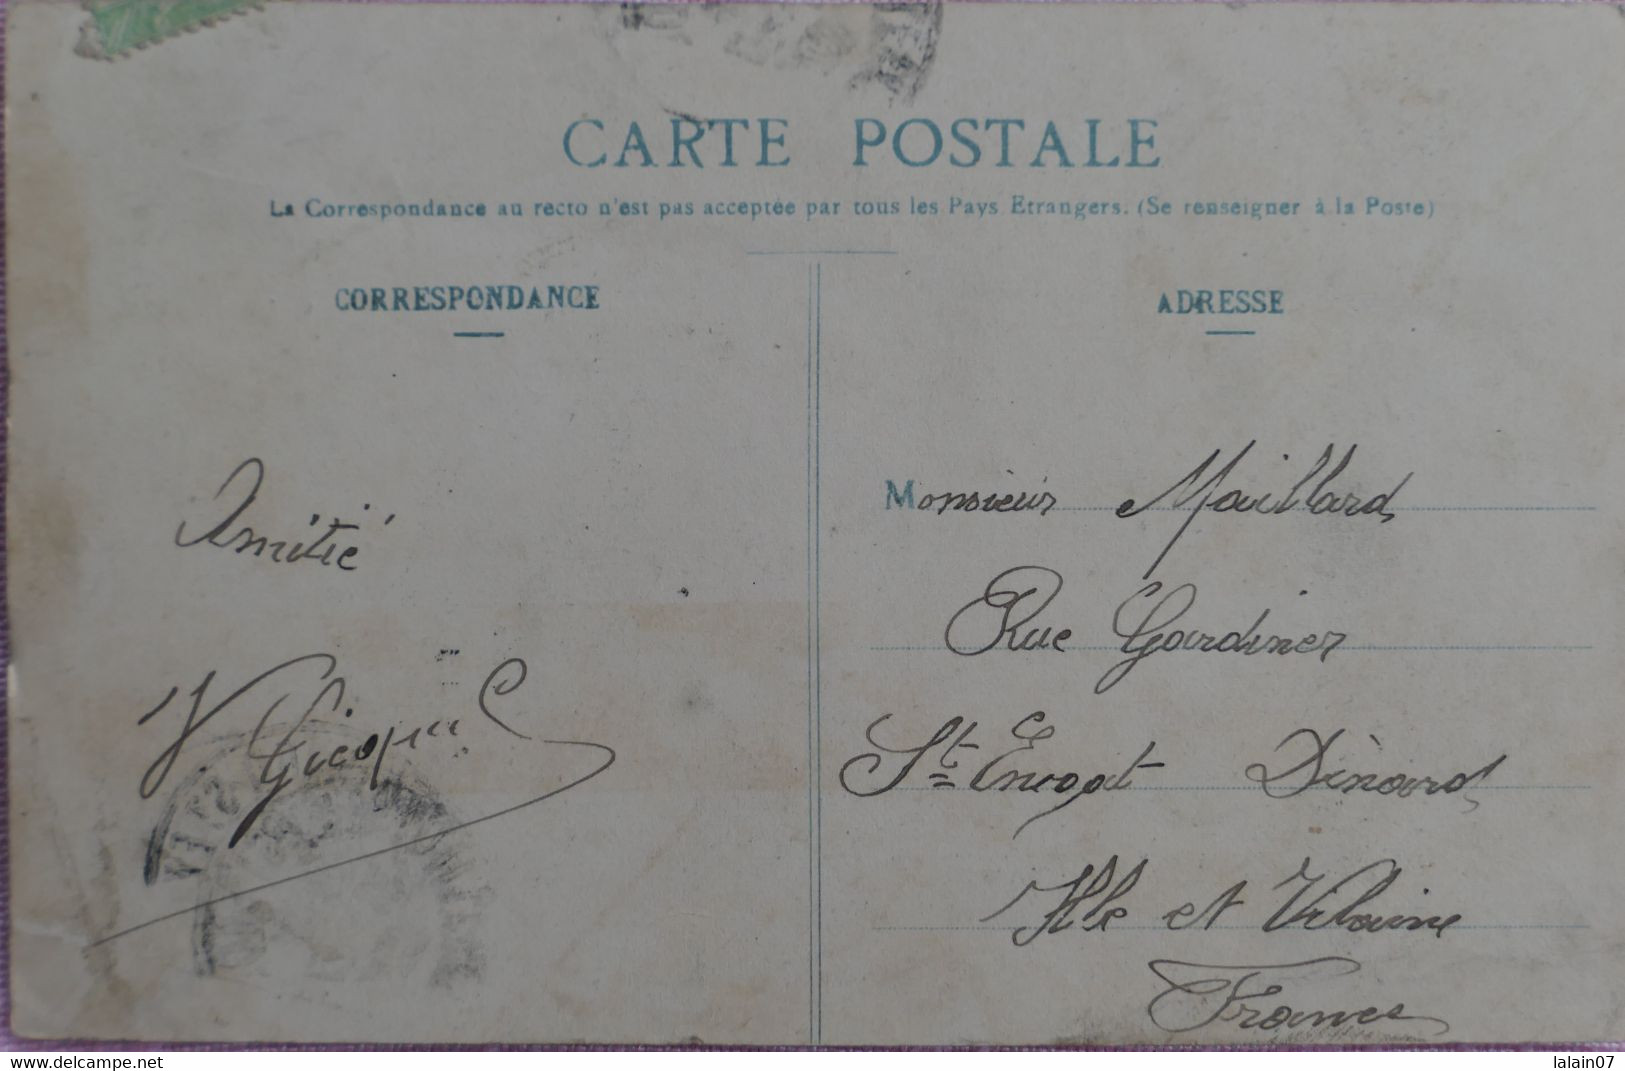 CARTE POSTALE
La Correspondance au recto n'est pas acceptée par tous les Pays Etrangers. (Se renseigner à la Poste)
CORRESPONDANCE
Amitié
V. Gicquel
ADRESSE
Monsieur Maillard
Rue Gardiner
St Enogat Dinard
Ille et Vilaine
France
www.delcampe.net
lalain07